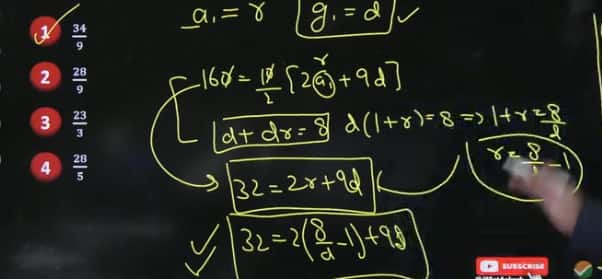 a₁ = r   g₁ = d ✓
1 34/9
2 28/9
3 23/3
4 28/5
160 = 10/2 [2a₁ + 9d]
r
d + dr = 8   d(1+r) = 8 ⇒ 1+r = 8/d
r = 8/d - 1
32 = 2r + 9d
32 = 2(8/d - 1) + 9d
SUBSCRIBE